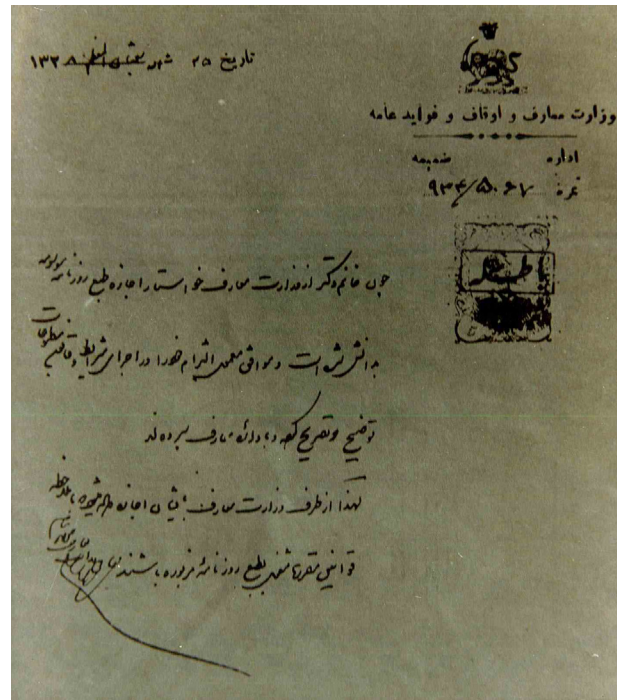 تاریخ ۲۵ شهر شعبان المعظم ۱۳۲۸
وزارت معارف و اوقاف و فواید عامه
اداره ضمیمه
نمرة ۹۳۴/۵۰۶۷
چون خانم دکتر از وزارت معارف خواستار اجازه طبع روزنامه موسومه
بدانش شده است و موافق معمول التزام خود را در اجرای شرایط و قانون مطبوعات
توضیح و تصریح کرده و باداره معارف سپرده اند
لهذا از طرف وزارت معارف بایشان اجازه داده میشود با ملاحظه
قوانین مقرره مشغول بطبع روزنامه مزبوره باشند